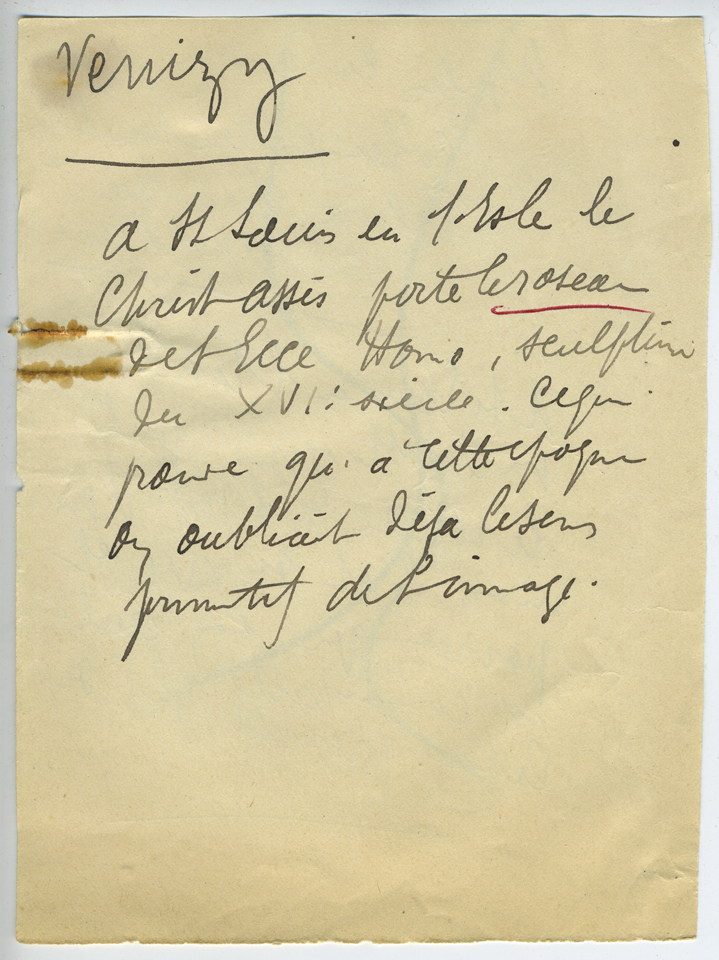 Venizy
a St Louis en l'Isle le
Christ assis porte le roseau
de l'Ecce Homo, sculpture
du XVIe siècle. Ce qui
prouve qu'à cette époque
on oubliait déjà le sens
primitif de l'image.